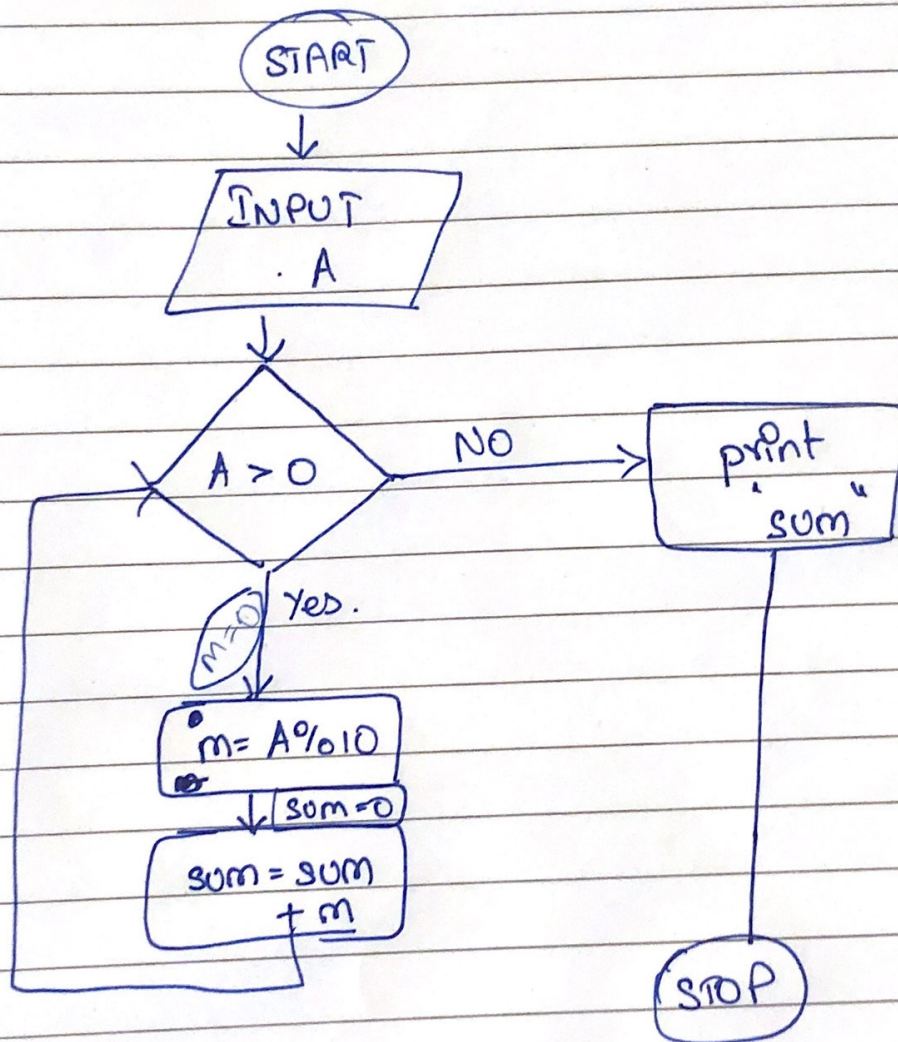 START
INPUT
. A
A > 0
NO
print
"sum"
Yes.
m=0
m= A%10
sum=0
sum = sum
+ m
STOP